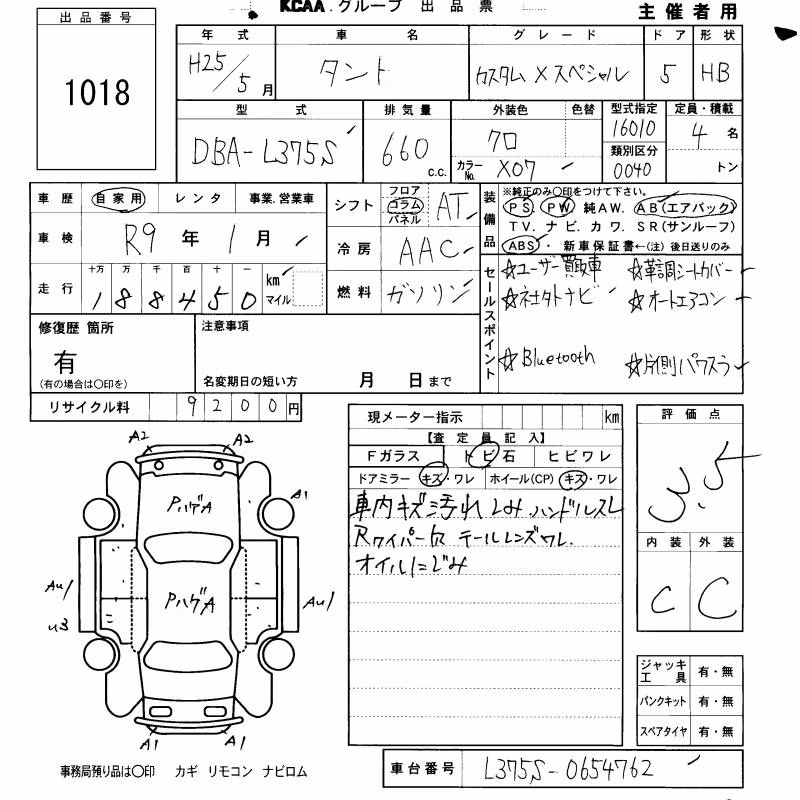 KCAA.グループ 出品票
主催者用
出品番号
1018
年式 車名 グレード ドア 形状
H25/5月 タント カスタム Xスペシャル 5 HB
型式 排気量 外装色 色替 型式指定 定員・積載
DBA-L375S 660 c.c. クロ 16010 4名
カラーNo. X07 類別区分 0040 トン
車歴 自家用 レンタ 事業.営業車
車検 R9年1月
走行 十万 万 千 百 十 一
188450 km マイル
シフト フロア コラム パネル AT
冷房 AAC
燃料 ガソリン
装備品 ※純正のみ〇印をつけて下さい。
PS PW 純AW. AB(エアバック)
TV. ナビ. カワ. SR(サンルーフ)
ABS・ 新車保証書←(注) 後日送りのみ
セールスポイント
☆ユーザー買取車 ☆革調シートカバー
☆社外ナビ ☆オートエアコン
☆Bluetooth ☆片側パワスラ
修復歴 箇所
有
(有の場合は〇印を)
注意事項
名変期日の短い方 月 日まで
リサイクル料 9200円
現メーター指示 km
【査定員記入】
Fガラス トビ石 ヒビワレ
ドアミラー キズ・ワレ ホイール(CP) キズ・ワレ
車内キズ汚れ しみ ハンドルスレ
Rワイパー欠 テールレンズワレ
オイルにじみ
評価点
3.5
内装 外装
C C
A2 A2
PハゲA
A1
PハゲA
AU1 AU1
U3
A1 A1
ジャッキ工具 有・無
パンクキット 有・無
スペアタイヤ 有・無
事務局預り品は〇印 カギ リモコン ナビロム
車台番号 L375S-0654762